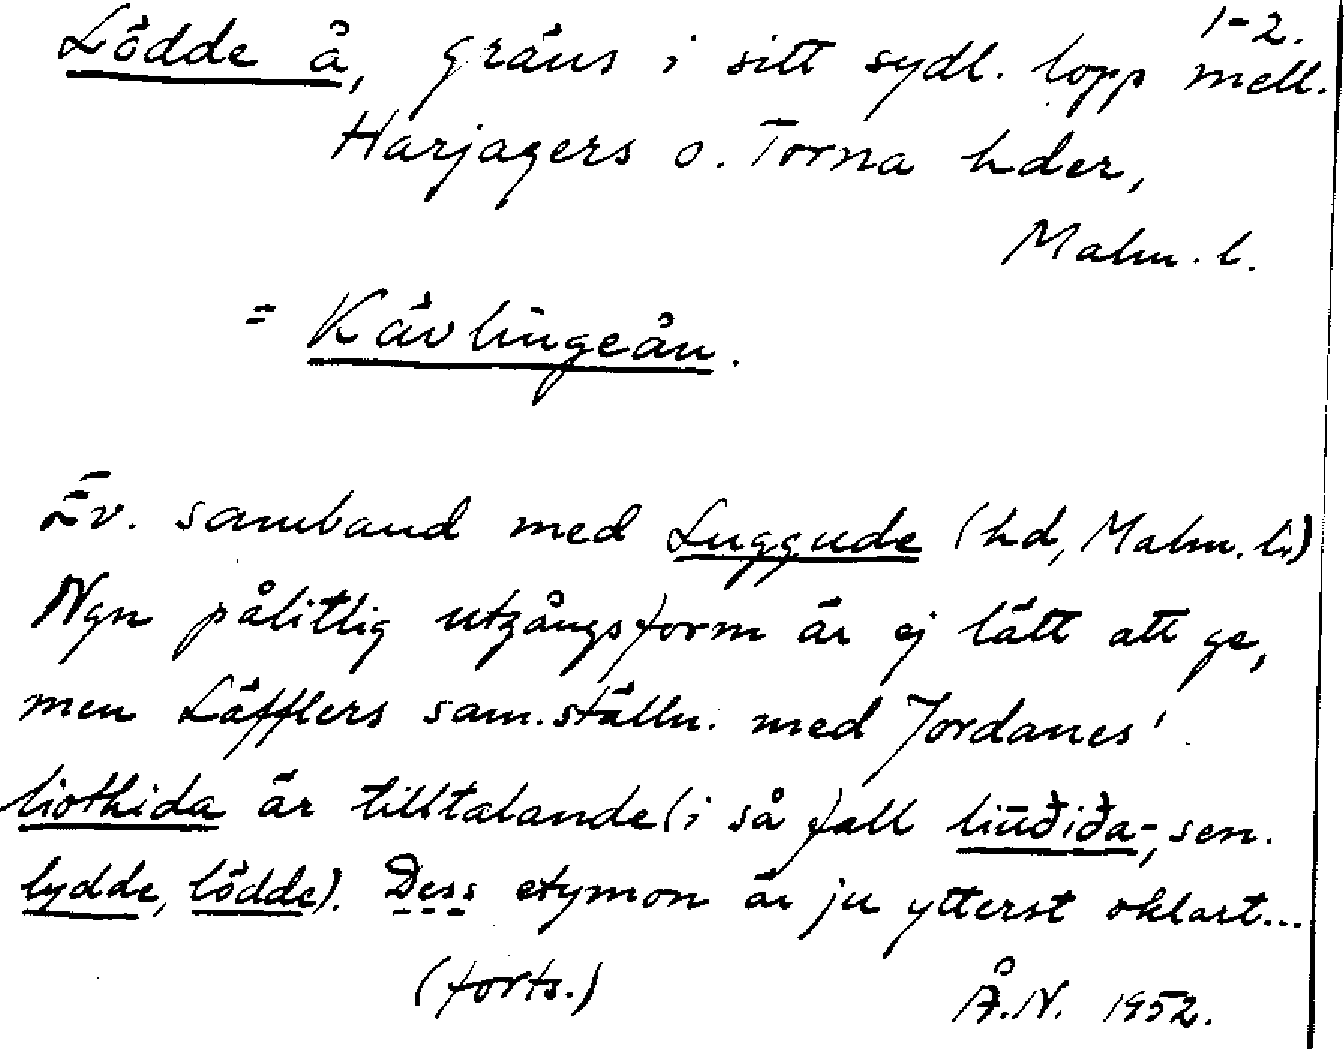 1-2.
Lödde å, gräns i sitt sydl. lopp mell.
Harjagers o. Torna hder,
Malm. l.
= Kävlingeån.
Ev. samband med Luggude (hd, Malm. l.)
Ngn pålitlig utgångsform är ej lätt att ge,
men Läfflers sam.ställn. med Jordanes'
liothida är tilltalande (i så fall liūðiða-, sen.
lydde, lödde). Dess etymon är ju ytterst oklart...
(forts.) Å.N. 1952.